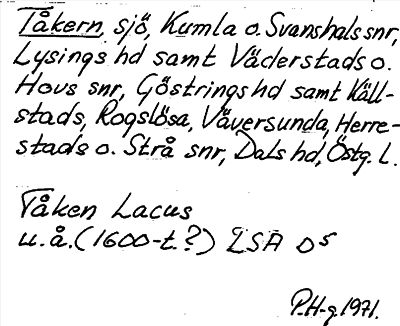 Tåkern, sjö, Kumla o. Svanshals snr,
Lysings hd samt Väderstads o.
Hovs snr, Göstrings hd samt Käll-
stads, Rogslösa, Väversunda, Herre-
stads o. Strå snr, Dals hd, Östg. L.
Tåken Lacus
u.å. (1600-t.?) LSA D5
P.H-g. 1971.